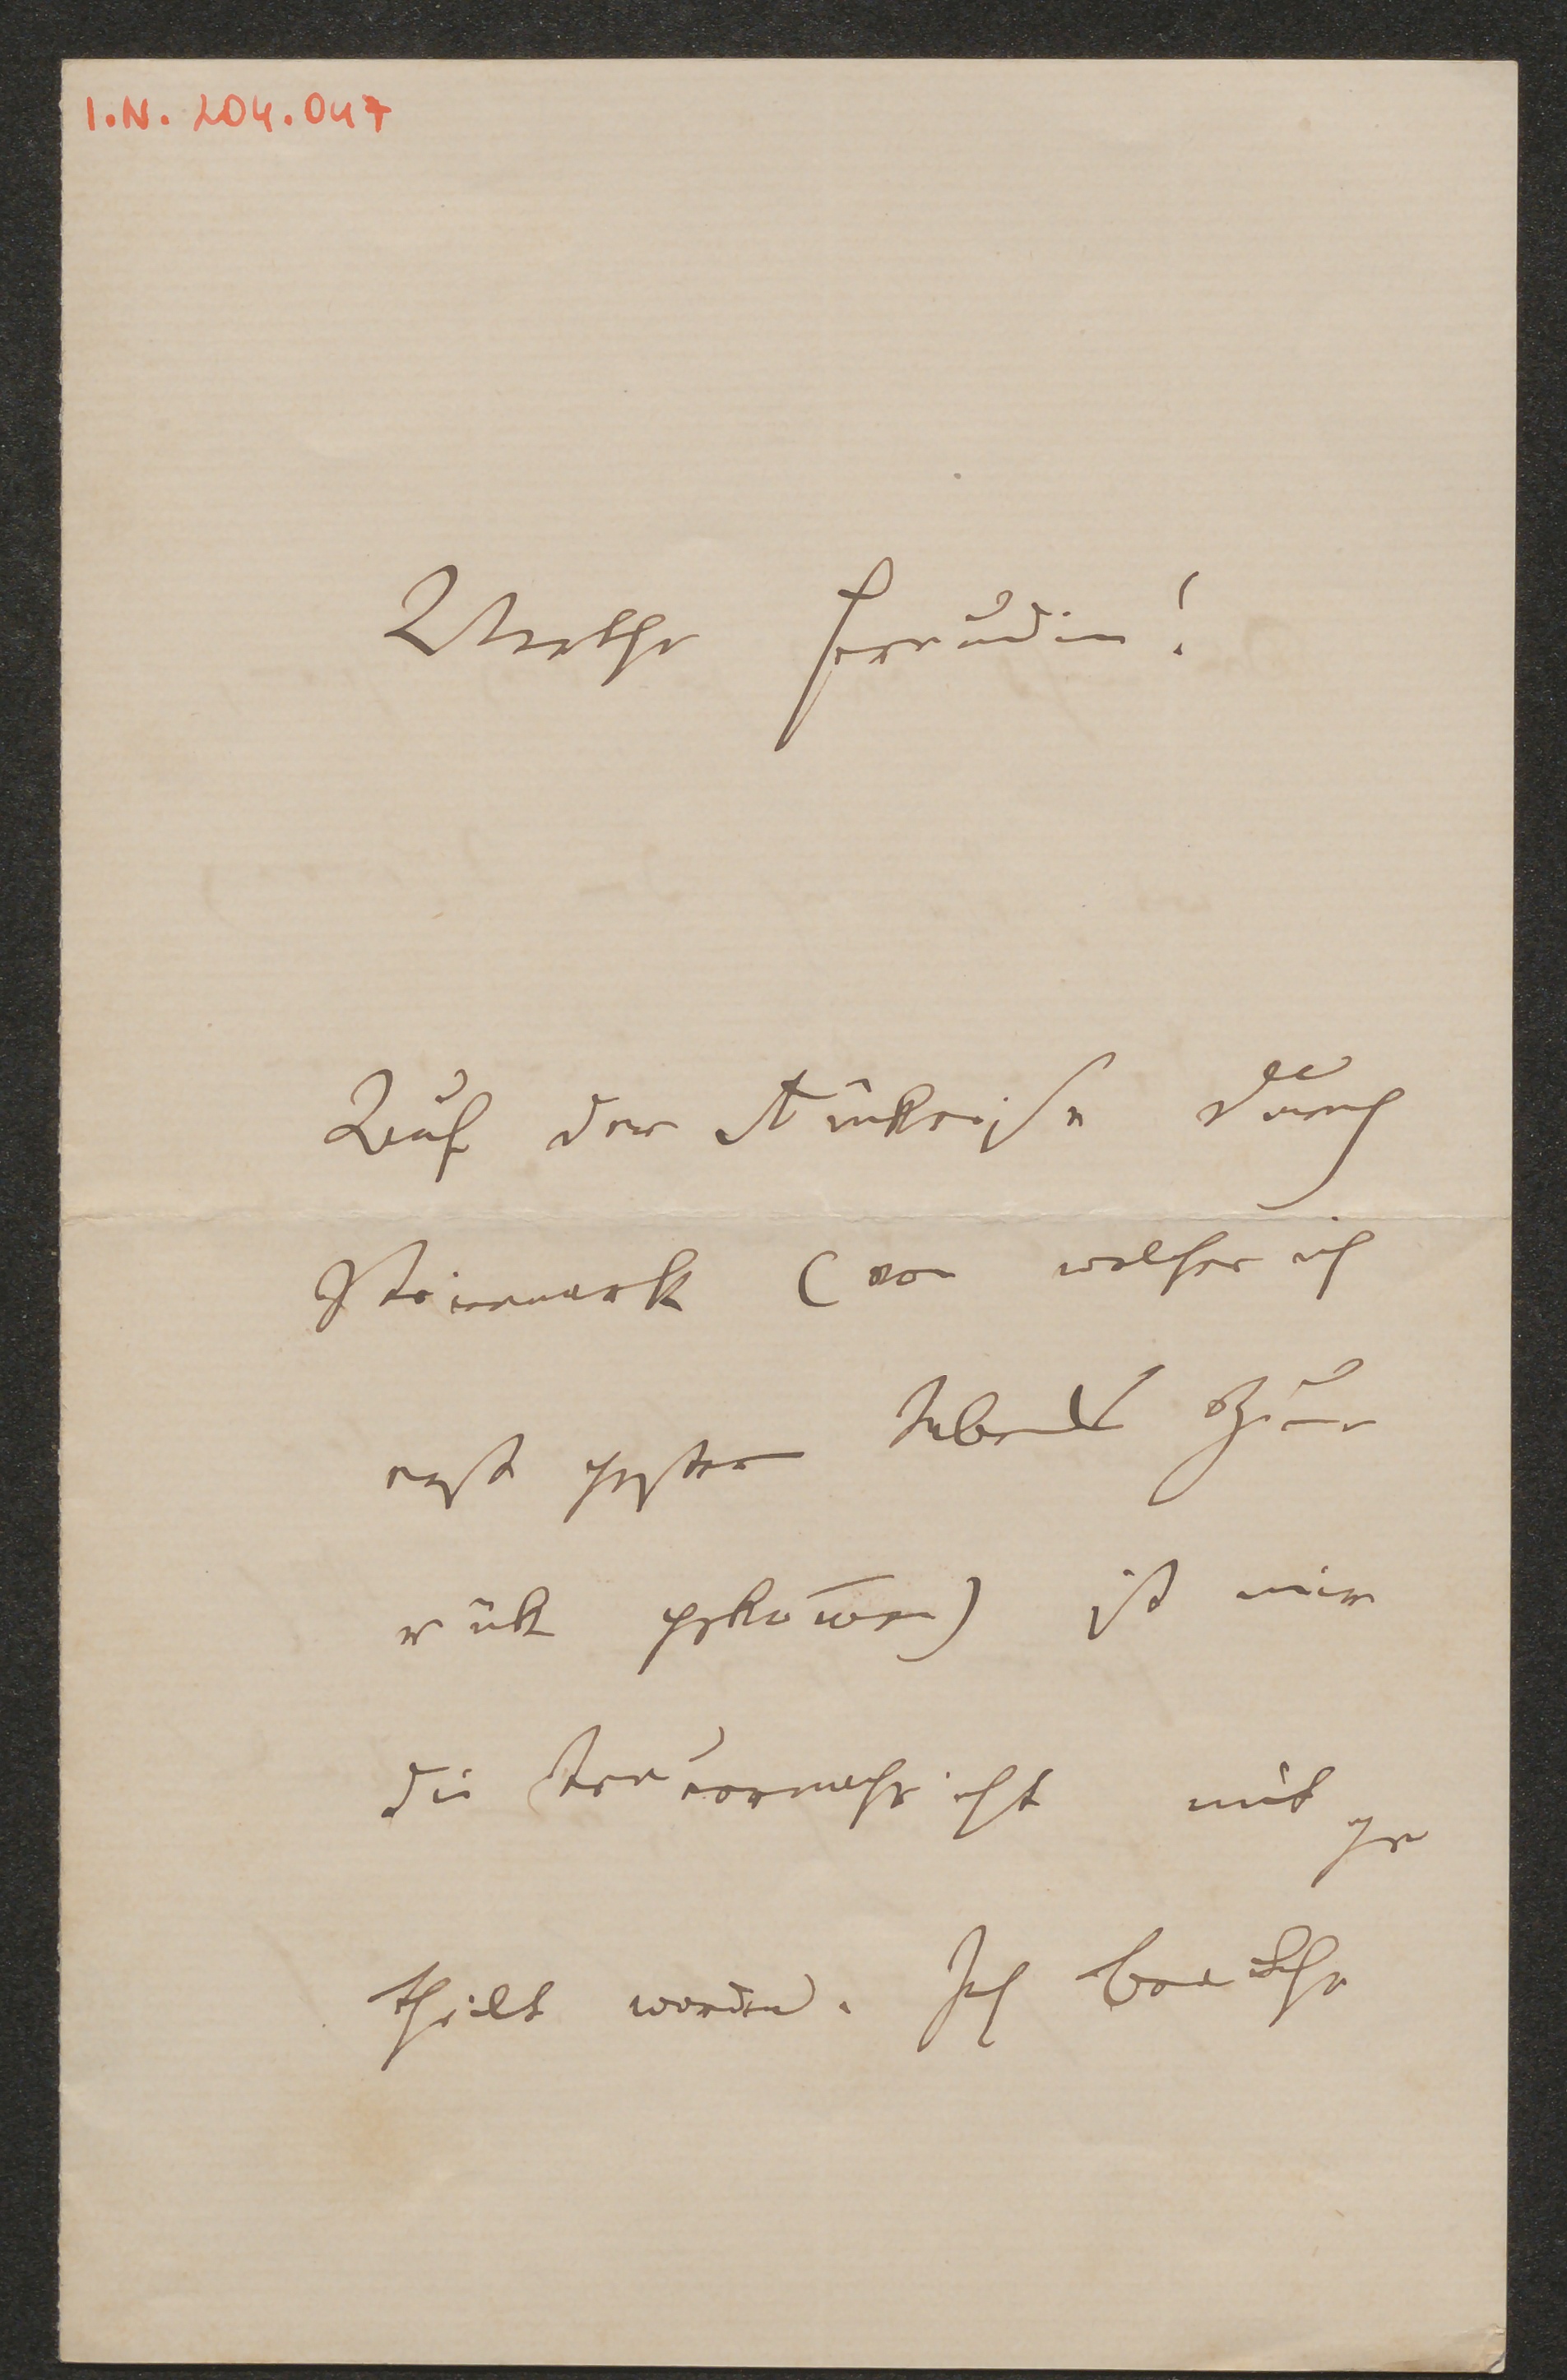 I.N. 204.047
Werthe Freundin!
Auf der Rükreise durch
Steiermark (von welcher ich
erst gestern Abend zu
rük gekom̅en) ist mir
die Trauernachricht mit ge
theilt worden. Ich